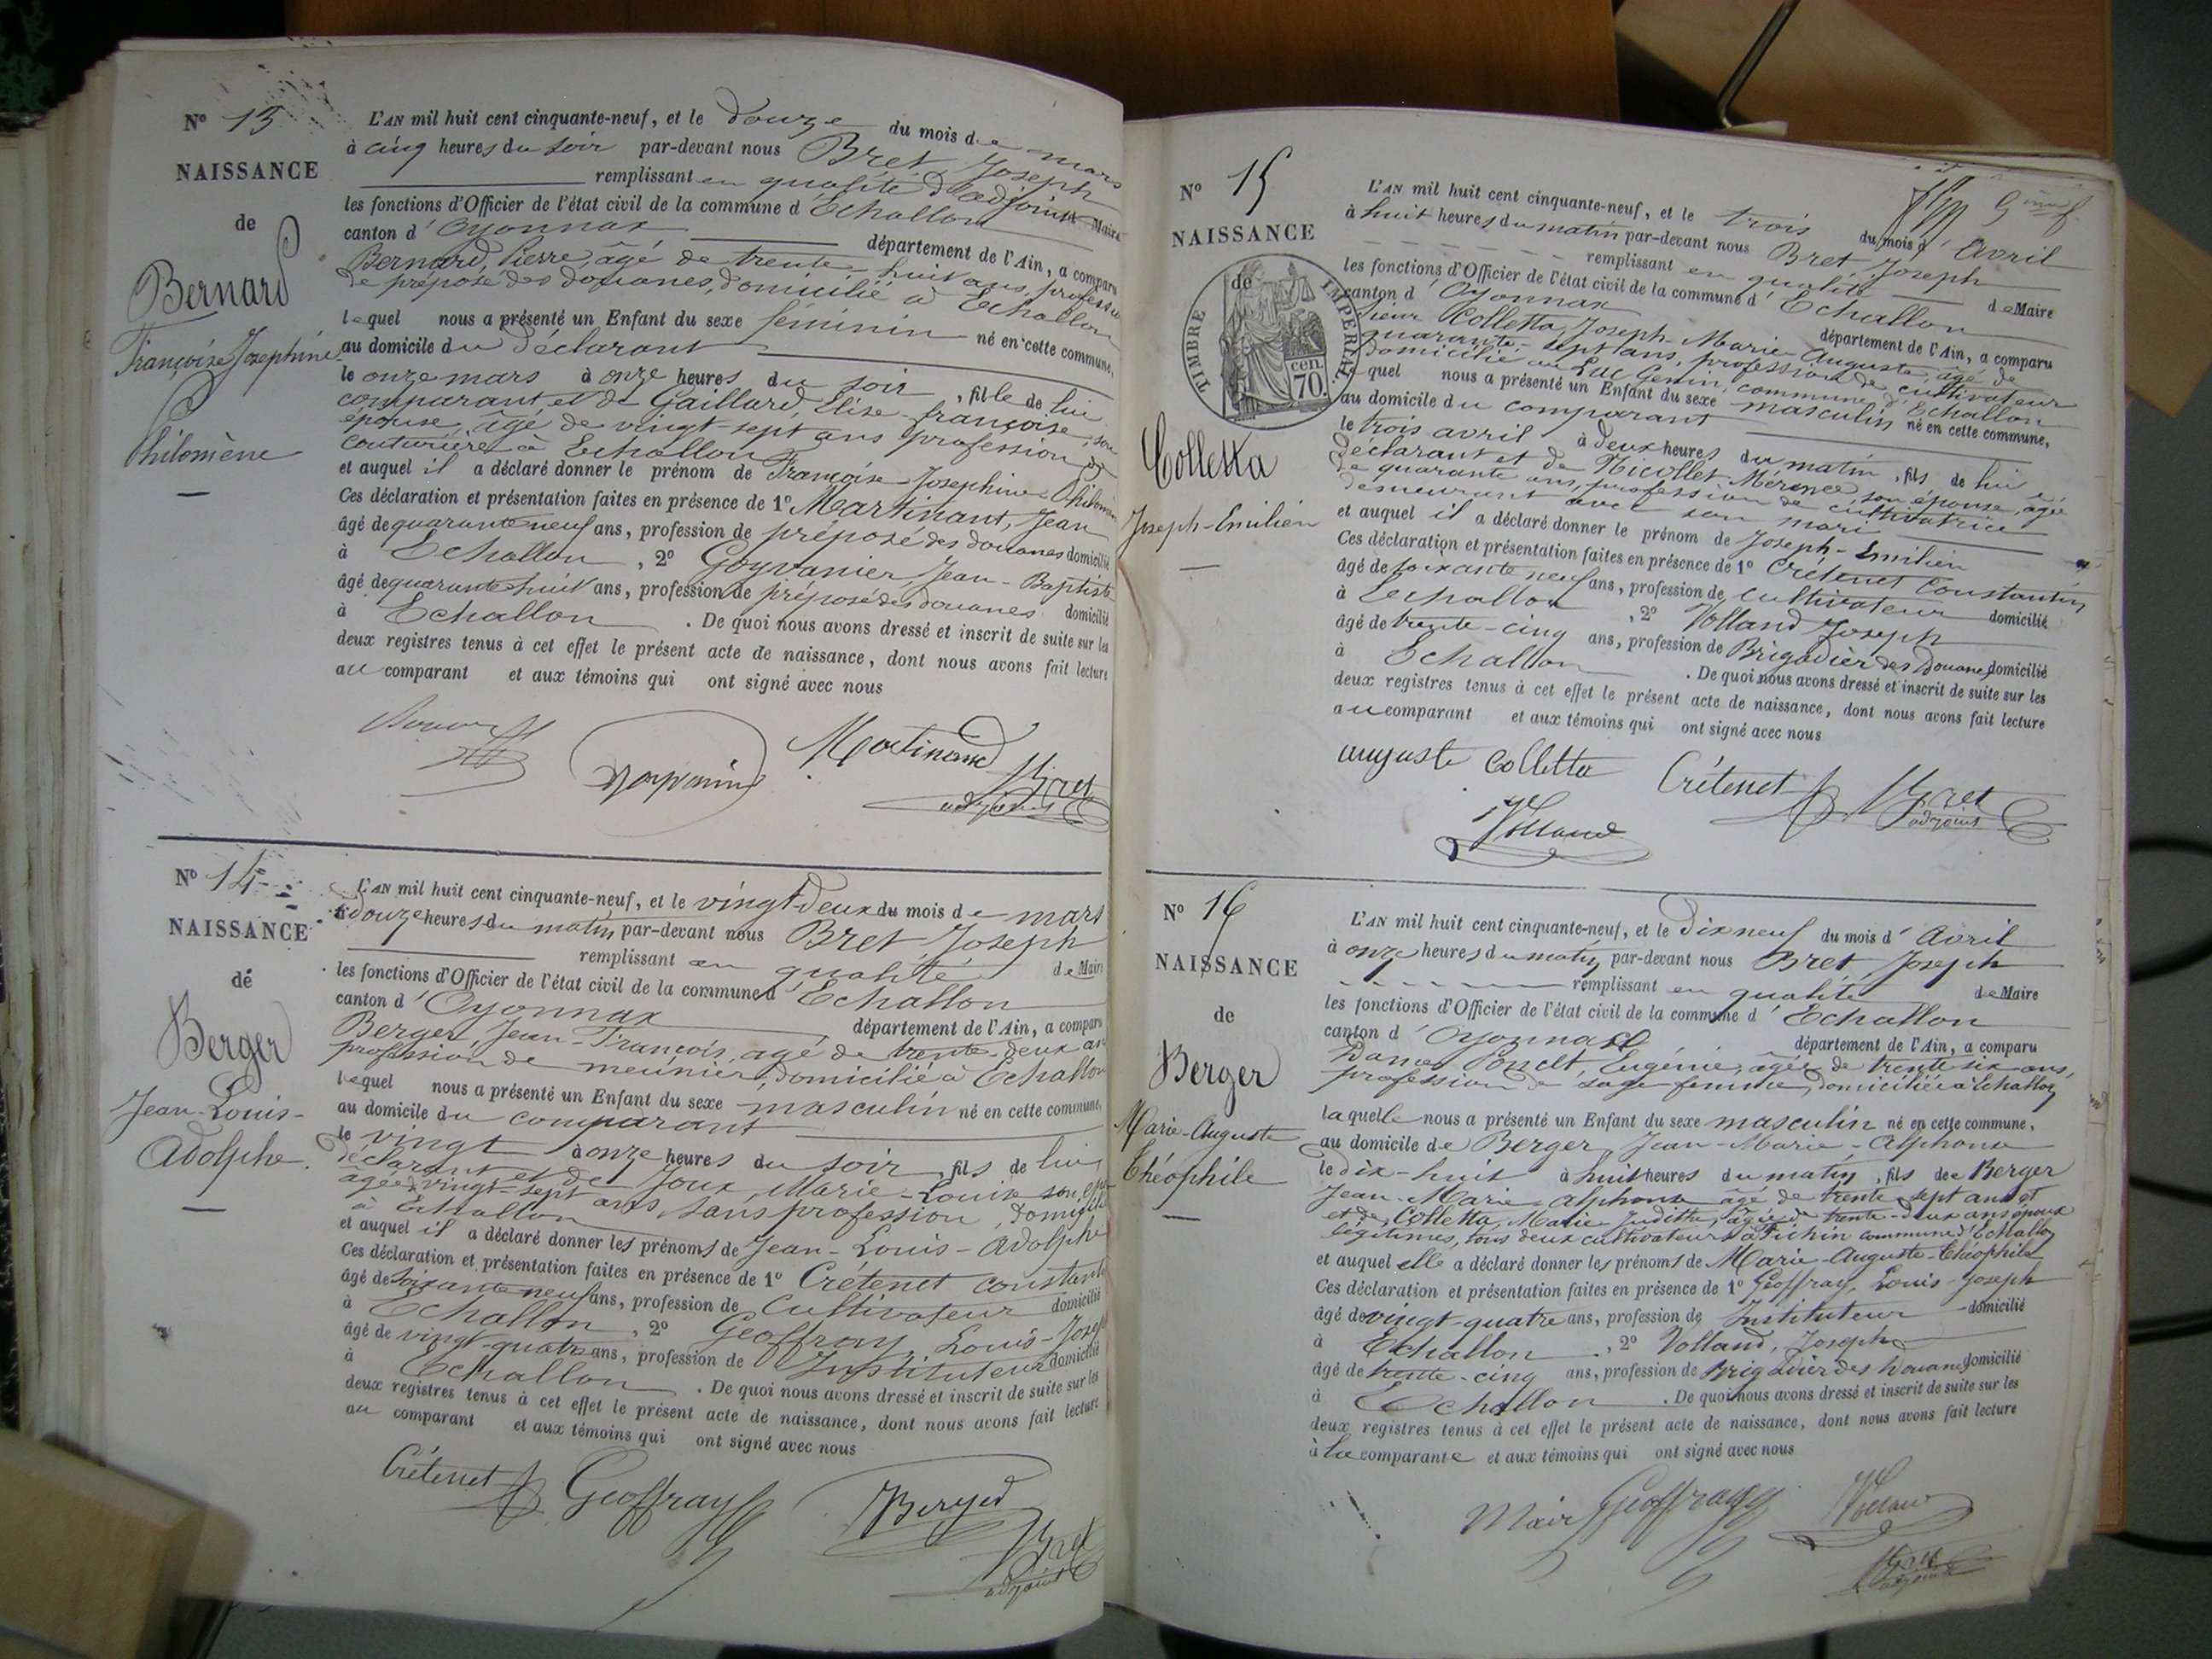 N° 13
NAISSANCE
de
Bernard
Françoise Josephine
Philomène
L'AN mil huit cent cinquante-neuf, et le douze du mois de mars
à cinq heures du soir par-devant nous Bret, Joseph
remplissant en qualité d'adjoint Maire
les fonctions d'Officier de l'état civil de la commune d'Echallon
canton d'Oyonnax département de l'Ain, a comparu
Bernard, Pierre, âgé de trente-huit ans, profession
de préposé des douanes, domicilié à Echallon
lequel nous a présenté un Enfant du sexe féminin né en cette commune,
au domicile du déclarant
le onze mars à onze heures du soir, fille de lui
comparant et de Gaillard, Elise-françoise, son
épouse, âgé de vingt-sept ans profession de
couturière à Echallon
et auquel il a déclaré donner le prénom de Françoise Josephine Philomène
Ces déclaration et présentation faites en présence de 1° Martinant, Jean
âgé de quarante neuf ans, profession de préposé des douanes domicilié
à Echallon, 2° Goyvanier, Jean-Baptiste
âgé de quarante huit ans, profession de préposé des douanes domicilié
à Echallon. De quoi nous avons dressé et inscrit de suite sur les
deux registres tenus à cet effet le présent acte de naissance, dont nous avons fait lecture
au comparant et aux témoins qui ont signé avec nous
Martinand
Bret
adjoint
N° 14
NAISSANCE
de
Berger
Jean-Louis-
Adolphe
L'AN mil huit cent cinquante-neuf, et le vingt-deux du mois de mars
à douze heures du matin par-devant nous Bret Joseph
remplissant en qualité de Maire
les fonctions d'Officier de l'état civil de la commune d'Echallon
canton d'Oyonnax département de l'Ain, a comparu
Berger, Jean-François, âgé de trente-deux ans
profession de meunier, domicilié à Echallon
lequel nous a présenté un Enfant du sexe masculin né en cette commune,
au domicile du comparant
le vingt à onze heures du soir, fils de lui,
déclarant et de Joux, Marie-Louise son
âgée de vingt-sept ans, sans profession, domiciliée
à Echallon
et auquel il a déclaré donner les prénoms de Jean-Louis-Adolphe
Ces déclaration et présentation faites en présence de 1° Crétenet constantin
âgé de soixante neuf ans, profession de Cultivateur domicilié
à Echallon, 2° Geoffray, Louis-Joseph
âgé de vingt-quatre ans, profession de Instituteur domicilié
à Echallon. De quoi nous avons dressé et inscrit de suite sur les
deux registres tenus à cet effet le présent acte de naissance, dont nous avons fait lecture
au comparant et aux témoins qui ont signé avec nous
Crétenet Geoffray Berger
Bret
adjoint
N° 15
NAISSANCE
de
TIMBRE IMPERIAL
70 cen.
Colletta
Joseph-Emilien
L'AN mil huit cent cinquante-neuf, et le trois du mois d'Avril
à huit heures du matin par-devant nous Bret Joseph
remplissant en qualité de Maire
les fonctions d'Officier de l'état civil de la commune d'Echallon
canton d'Oyonnax département de l'Ain, a comparu
Sieur Colletta, Joseph-Marie-Auguste, âgé de
quarante-sept ans, profession de cultivateur
domicilié au Luc Genin, commune d'Echallon
quel nous a présenté un Enfant du sexe masculin né en cette commune,
au domicile du comparant
le trois avril à deux heures du matin, fils de lui
déclarant et de Nicollet, son épouse, âgé
de quarante ans, profession de cultivatrice
demeurant avec son mari
et auquel il a déclaré donner le prénom de Joseph-Emilien
Ces déclaration et présentation faites en présence de 1° Crétenet Constantin
âgé de soixante neuf ans, profession de cultivateur domicilié
à Echallon, 2° Volland Joseph
âgé de trente-cinq ans, profession de Brigadier des Douanes domicilié
à Echallon. De quoi nous avons dressé et inscrit de suite sur les
deux registres tenus à cet effet le présent acte de naissance, dont nous avons fait lecture
au comparant et aux témoins qui ont signé avec nous
auguste Colletta Crétenet Bret
adjoint
Volland
N° 16
NAISSANCE
de
Berger
Marie-Auguste
Théophile
L'AN mil huit cent cinquante-neuf, et le Dix neuf du mois d'Avril
à onze heures du matin par-devant nous Bret, Joseph
remplissant en qualité de Maire
les fonctions d'Officier de l'état civil de la commune d'Echallon
canton d'Oyonnax département de l'Ain, a comparu
Dame Poncet, Eugénie, âgée de trente six ans,
profession de sage femme, domiciliée à Echallon
laquelle nous a présenté un Enfant du sexe masculin né en cette commune,
au domicile de Berger Jean-Marie-Alphonse
le dix-huit à huit heures du matin, fils de Berger
Jean-Marie alphonse âgé de trente sept ans et
et de Colletta, Marie Judithe, âgée de trente-deux ans époux
légitimes, tous deux cultivateurs à commune d'Echallon
et auquel elle a déclaré donner les prénoms de Marie-Auguste-Théophile
Ces déclaration et présentation faites en présence de 1° Geoffray, Louis-Joseph
âgé de vingt-quatre ans, profession de Instituteur domicilié
à Echallon, 2° Volland, Joseph
âgé de trente-cinq ans, profession de Brigadier des Douanes domicilié
à Echallon. De quoi nous avons dressé et inscrit de suite sur les
deux registres tenus à cet effet le présent acte de naissance, dont nous avons fait lecture
à la comparante et aux témoins qui ont signé avec nous
Geoffray Volland
Bret
adjoint